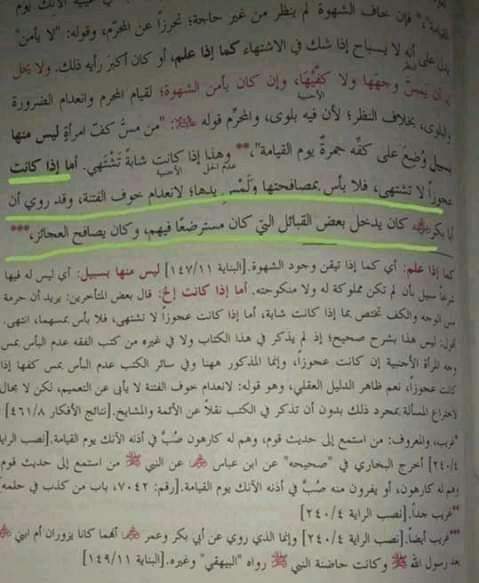 القيامة"، فإن خاف الشهوة لم ينظر من غير حاجة؛ تحرزا عن المحرّم، وقوله: "لا يأمن"
يدل على أنه لا يباح إذا شك في الاشتهاء كما إذا علم، أو كان أكبر رأيه ذلك. ولا يحل
له أن يمسّ وجهها ولا كفّيها، وإن كان يأمن الشهوة؛ لقيام المحرم وانعدام الضرورة
الأجنبية
والبلوى، بخلاف النظر؛ لأن فيه بلوى، والمحرِّم قوله ﷺ: "من مسَّ كفّ امرأةٍ ليس منها
بسبيل وُضِعَ على كفّه جمرةٌ يوم القيامة"،** وهذا إذا كانت شابةً تَشْتَهي. أما إذا كانت
الأجنبية
عجوزاً لا تشتهى، فلا بأس بمصافحتها ولَمْسِ يدها؛ لانعدام خوف الفتنة، وقد روي أن
أبا بكر كان يدخل بعض القبائل التي كان مسترضعًا فيهم، وكان يصافح العجائز،***
كما إذا علم: أي كما إذا تيقن وجود الشهوة. [البناية ١٤٧/١١] ليس منها بسبيل: أي ليس له فيها
شرعاً سبيل بأن لم تكن مملوكة له ولا منكوحته. أما إذا كانت إلخ: قال بعض المتأخرين: يريد أن حرمة
مس الوجه والكف تختص بما إذا كانت شابة، أما إذا كانت عجوزاً لا تشتهى، فلا بأس بمسهما، انتهى.
أقول: ليس هذا بشرح صحيح؛ إذ لم يذكر في هذا الكتاب ولا في غيره من كتب الفقه عدم البأس بمس
وجه المرأة الأجنبية إن كانت عجوزاً، وإنما المذكور ههنا وفي سائر الكتب عدم البأس بمس كفها إذا
كانت عجوزاً، نعم ظاهر الدليل العقلي، وهو قوله: لانعدام خوف الفتنة لا يأبى عن التعميم، لكن لا مجال
لاختراع المسألة بمجرد ذلك بدون أن تذكر في الكتب نقلاً عن الأئمة والمشايخ. [نتائج الأفكار ٤٦١/٨]
*غريب، والمعروف: من استمع إلى حديث قوم، وهم له كارهون صُبَّ في أذنه الآنك يوم القيامة. [نصب الراية
٢٤٠/٤] أخرج البخاري في "صحيحه" عن ابن عباس عن النبي ﷺ من استمع إلى حديث قوم
وهم له كارهون، أو يفرون منه صُبَّ في أذنه الآنك يوم القيامة. [رقم: ٧٠٤٢، باب من كذب في حلمه]
**غريب جداً. [نصب الراية ٢٤٠/٤]
***غريب أيضاً. [نصب الراية ٢٤٠/٤] وإنما الذي روي عن أبي بكر وعمر أنهما كانا يزوران أم أيمن
بعد رسول الله ﷺ وكانت حاضنة النبي ﷺ رواه "البيهقي" وغيره. [البناية ١٤٩/١١]